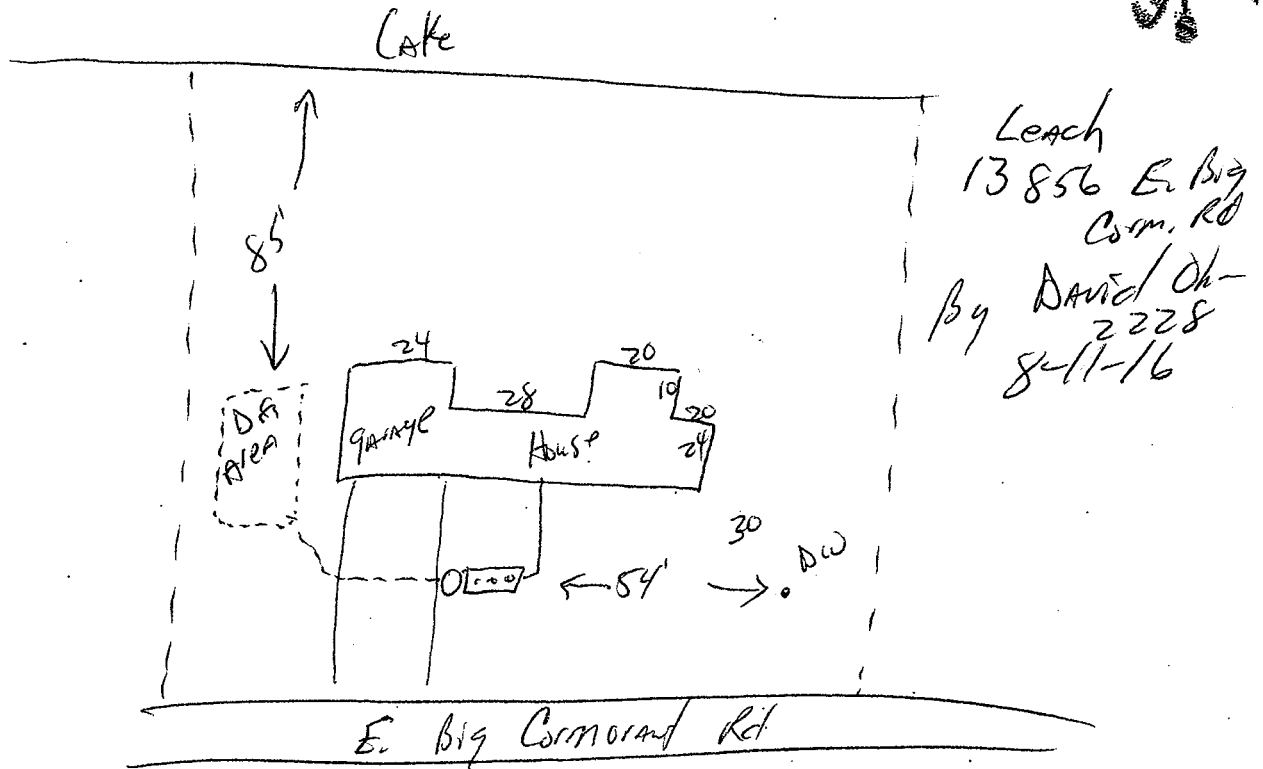 Lake
Leach
13856 E. Big
Corm. Rd
By David Oh-
2228
8-11-16
85'
24
20
28
10
20
24
Garage
House
Area
30
DW
54'
E. Big Cormorant Rd